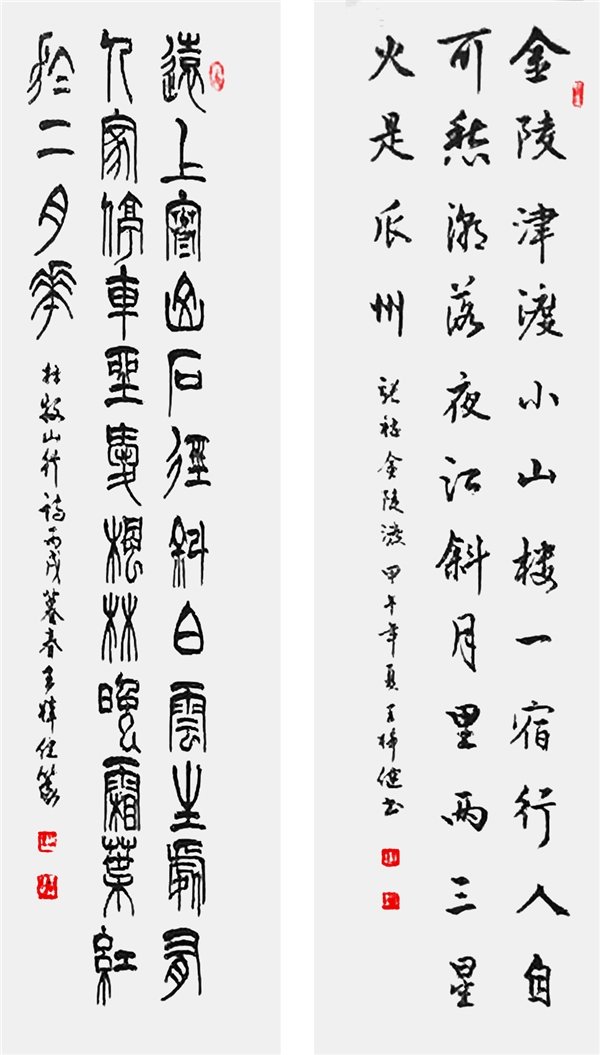 金陵津渡小山楼一宿行人自
可愁潮落夜江斜月里两三星
火是瓜州
张祜金陵渡 甲午年夏 王梓健书
遠上寒山石徑斜白雲生處有
人家停車坐愛楓林晚霜葉紅
於二月華
杜牧山行詩 丙戌暮春 王梓健篆